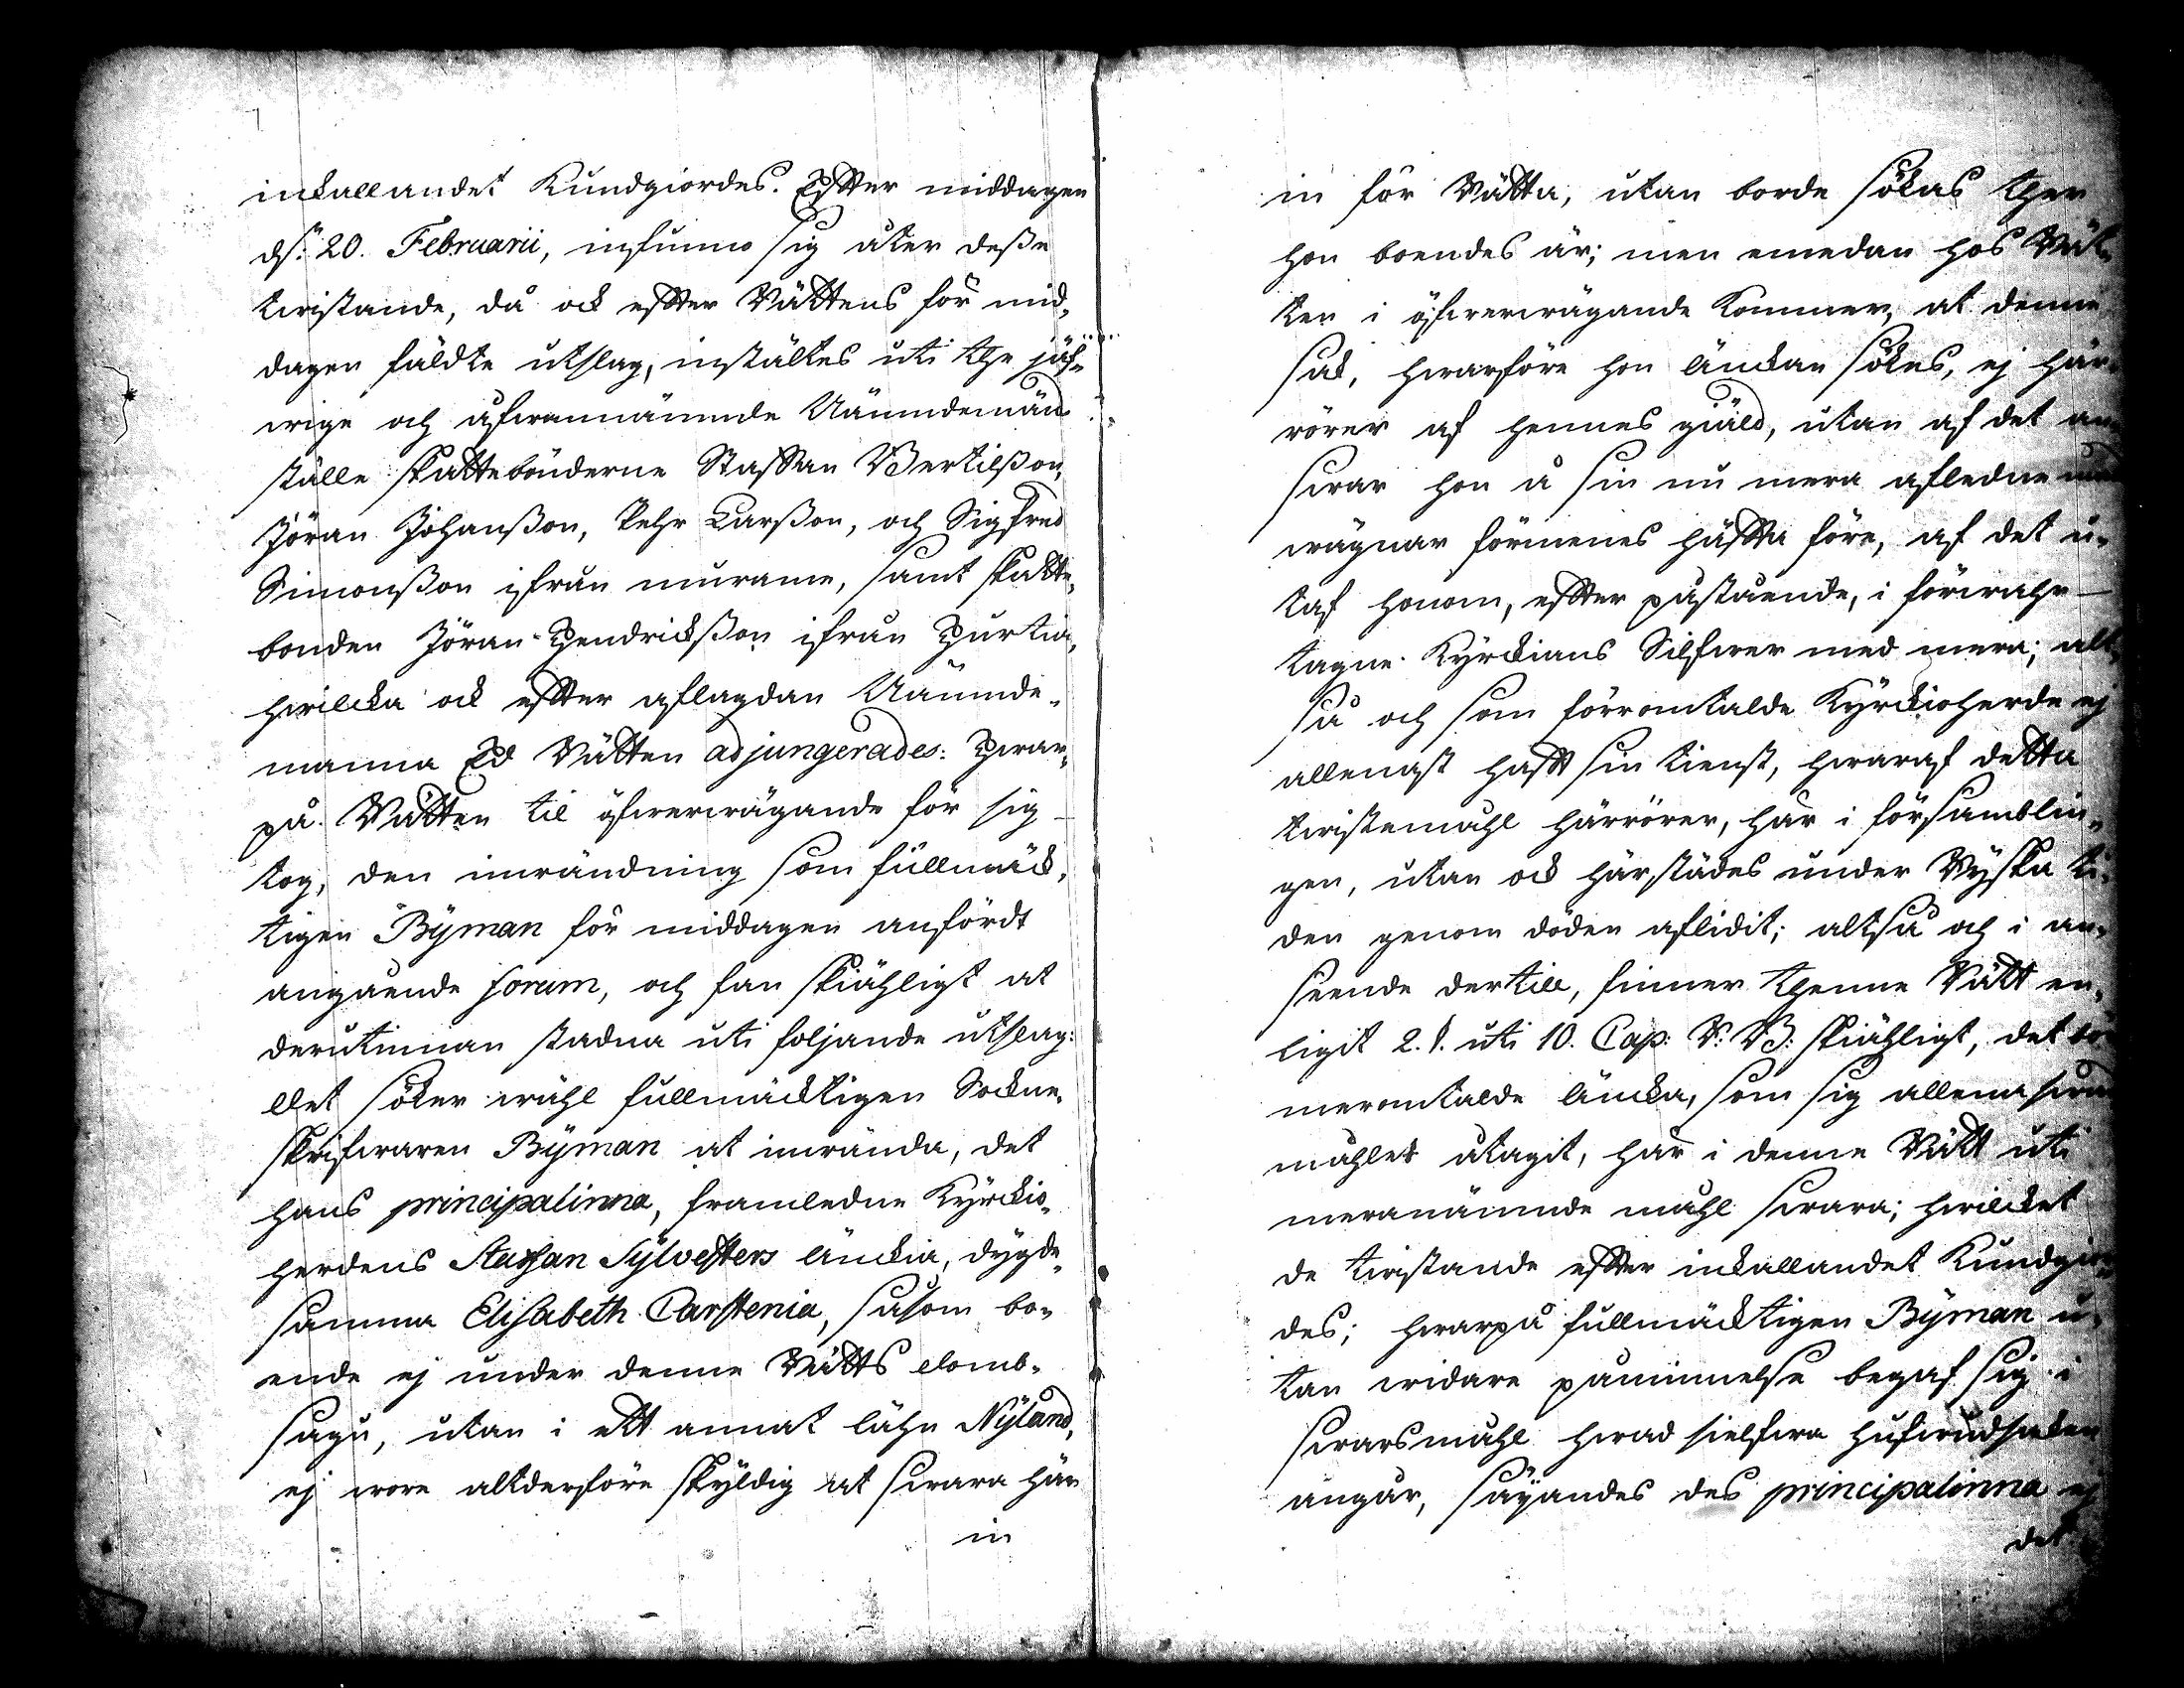 inkallandet Kundgiordes. Effter middagen
d: 20. Februarii, infunno sig åter desse
twistande, då ock effter Rättens för mid-
dagen fäldte utslag, instältes uti the jäf-
wige och åfwannämnde Nämndemäns
ställe skattebönderne Staffan Bertilsson,
Jöran Johansson, Pehr Larsson, och Sigfred
Simonsson ifrån murame, samt skatte-
bonden Jöran Hendricksson ifrån Hurtia,
hwilcka ock effter aflagdan Nämnde-
manna Ed Rätten adjungerades: Hwar-
på Rätten til öfwerwägande för sig
tog, den inwändning som fullmäck-
tigen Byman för middagen anfördt
angående forum, och fan skiähligt at
derutinnan stadna uti foljande utslag:
Det söker wähl fullmäcktigen Sockne-
skrifwaren Byman at inwända, det
hans principalinna, framledne Kyrckio-
herdens Staffan Sylvesters änckia, dygde-
samma Elisabeth Carstenia, såsom bo-
ende ej under denne Rätts domb-
sagu, utan i ett annat lähn Nyland,
ej wore altderföre skyldig at swara här
in
in för Rätta, utan borde sökas ther
hon boendes är; men emedan hos Rät-
ten i öfwerwägande kommer, at denne
sak, hwarföre hon änckan sökes, ej här-
rörer af hennes giäld, utan af det an-
swar hon å sin nu mera afledne
wägnar förmenes häffta före, af det u-
taf honom, effter påstående, i förwahr
tagne Kyrckians Silfwer med mera; alt-
så och som förromtalde Kyrckioherde ej
allenast hafft sin tienst, hwaraf detta
twistemåhl härrörer, här i församblin-
gen, utan ock härstädes under Ryska ti-
den genom döden aflidit; altså och i an-
seende dertill, finner thenne Rätt en-
ligit 2. §. uti 10. Cap: R: B: skiähligt, det bör
meromtalde äncka, som sig allena swa
måhlet åtagit, här i denne Rätt uti
meranämnde måhl swara; hwilcket
de twistande effter inkallandet Kundgior-
des; hwarpå fullmäcktigen Byman u-
tan widare påminnelse begaf sig i
swarsmåhl hwad sielfwa hufwudsaken
angår, säyandes des principalinna ej
det